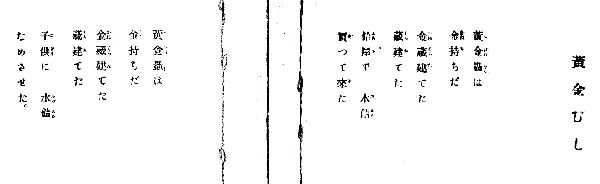 黃金むし
黃金蟲は
金持ちだ
金藏建てた
藏建てた
飴屋で 水飴
買つて來た
黃金蟲は
金持ちだ
金藏建てた
藏建てた
子供に 水飴
なめさせた。